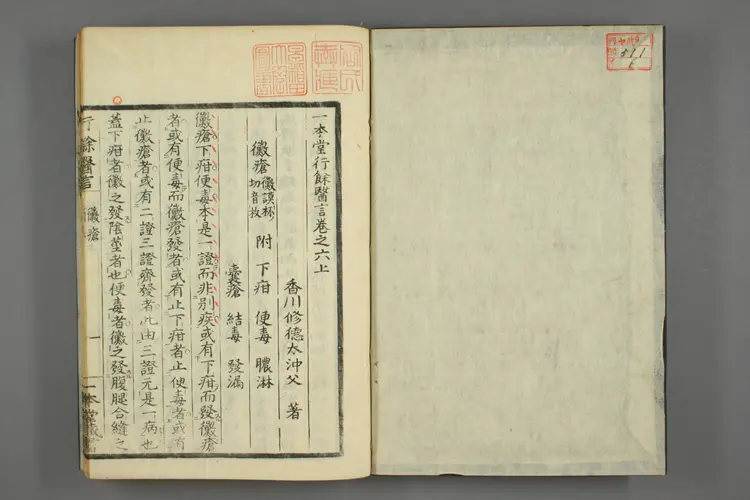 一本堂行餘醫言卷之六上
香川修德太沖父 著
黴瘡 黴謨杯切音枚 附 下疳 便毒 膿淋
囊瘡 結毒 發漏
黴瘡下疳便毒本是一證而非別疾或有下疳而發黴瘡
者或有便毒而黴瘡發者或有止下疳者止便毒者或有
止黴瘡者或有二證三證齊發者此由三證元是一病也
蓋下疳者黴之發陰莖者也便毒者黴之發腹腿合縫之
行餘醫言 黴瘡 一 一本堂藏
511
6